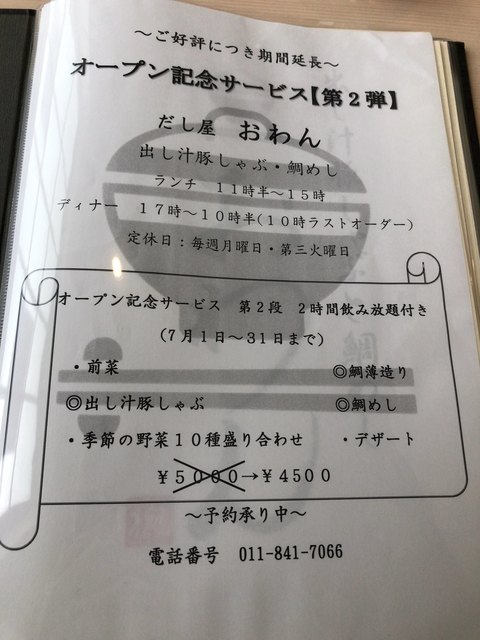 ～ご好評につき期間延長～
オープン記念サービス【第２弾】
だし屋　おわん
出し汁豚しゃぶ・鯛めし
ランチ　１１時半～１５時
ディナー　１７時～１０時半(１０時ラストオーダー)
定休日：毎週月曜日・第三火曜日
オープン記念サービス　第２段　２時間飲み放題付き
(７月１日～３１日まで)
・前菜　◎鯛薄造り
◎出し汁豚しゃぶ　◎鯛めし
・季節の野菜１０種盛り合わせ　・デザート
￥５０００→￥４５００
～予約承り中～
電話番号　011-841-7066